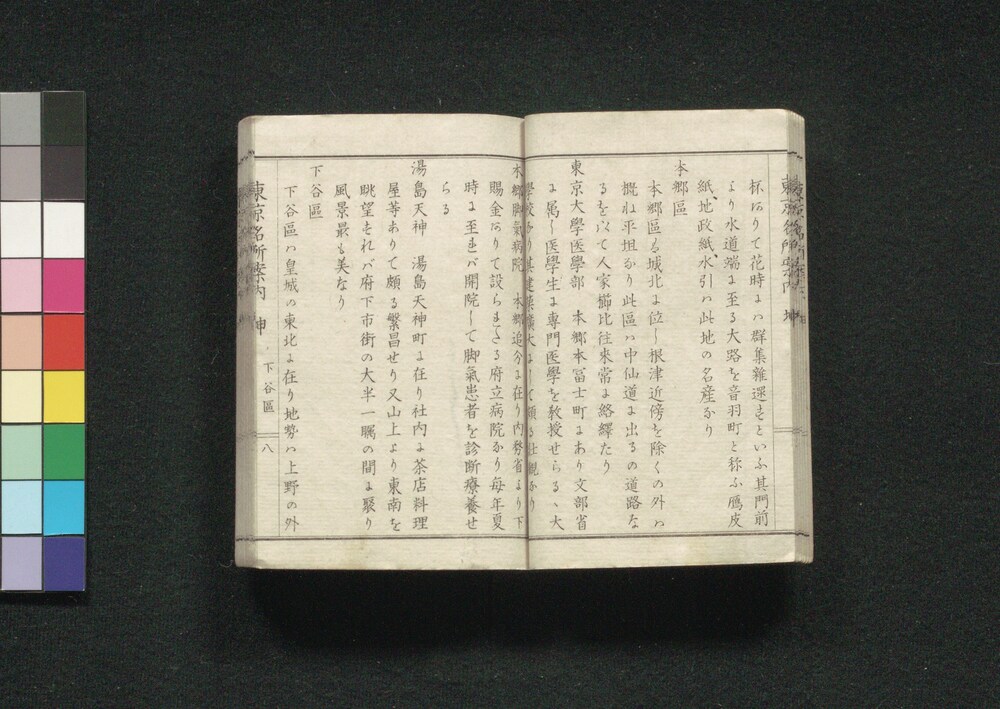 杯ありて花時にハ群集雜遝すといふ其門前
より水道端に至る大路を音羽町と称ふ鴈皮
紙、地政紙、水引ハ此地の名産なり
本郷區
本郷區も城北に位し根津近傍を除くの外ハ
概ね平坦なり此區ハ中仙道に出るの道路な
るを以て人家櫛比往來常に絡繹たり
東京大學医學部 本郷本冨士町にあり文部省
に属し医學生に専門医學を教授せらるゝ大
學校なり其建築廣大にして頗る壮観なり
本郷脚氣病院 本郷追分に在り内務省より下
賜金ありて設らきたる府立病院なり毎年夏
時に至きバ開院して脚氣患者を診断療養せ
らる
湯島天神 湯島天神町に在り社内に茶店料理
屋等ありて頗る繁昌せり又山上より東南を
眺望すれバ府下市街の大半一矚の間に聚り
風景最も美なり
下谷區
下谷區ハ皇城の東北に在り地勢ハ上野の外
東京名所案内 坤 下谷區 八